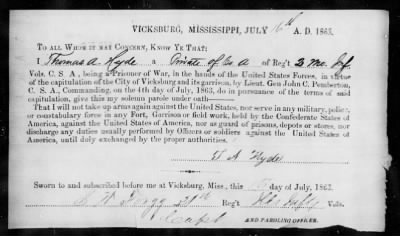 VICKSBURG, MISSISSIPPI, JULY 16th A. D. 1863.
TO ALL WHOM IT MAY CONCERN, KNOW YE THAT:
I Thomas A. Hyde a Private of Co A of Reg't 2 Mo Inf
Vols. C. S. A., being a Prisoner of War, in the hands of the United States Forces, in virtue
of the capitulation of the City of Vicksburg and its garrison, by Lieut. Gen John C. Pemberton,
C. S. A., Commanding, on the 4th day of July, 1863, do in pursuance of the terms of said
capitulation, give this my solemn parole under oath—
That I will not take up arms again against the United States, nor serve in any military, police,
or constabulary force in any Fort, Garrison or field work, held by the Confederate States of
America, against the United States of America, nor as guard of prisons, depots or stores, nor
discharge any duties usually performed by Officers or soldiers against the United States of
America, until duly exchanged by the proper authorities.
T A Hyde
Sworn to and subscribed before me at Vicksburg, Miss., this day of July, 1863.
Reg't Vols.
Capt AND PAROLING OFFICER.